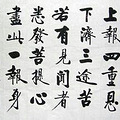 上報四重恩
下濟三途苦
若有見聞者
悉發菩提心
盡此一報身